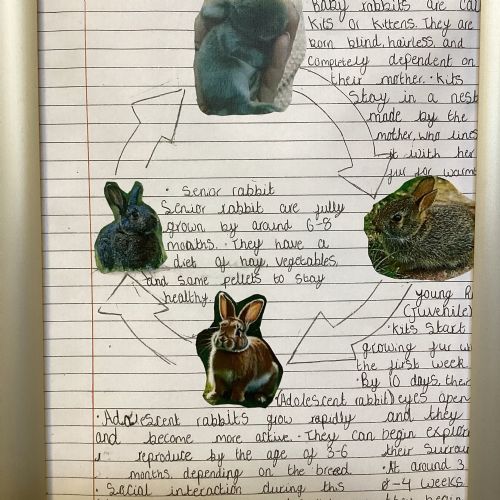 Baby rabbits are cal
kits or kittens. They are
born blind, hairless, and
completely dependent on
their mother. • Kits
Stay in a nest
made by the
mother, who lines
it with her
fur for warm
• Senior rabbit
Senior rabbit are fully
grown by around 6-8
months. • They have a
diet of hay, vegetables,
and some pellets to stay
healthy.
young R
(juvenile)
• Kits start
growing fur w
the first week
• By 10 days, their
eyes open
(Adolescent rabbit)
• Adolescent rabbits grow rapidly
and become more active. • They can begin
reproduce by the age of 3-6
months, depending on the breed
• Social interaction during ths
and they
explor
their surrou
• At around 3
8-4 weeks
they begin